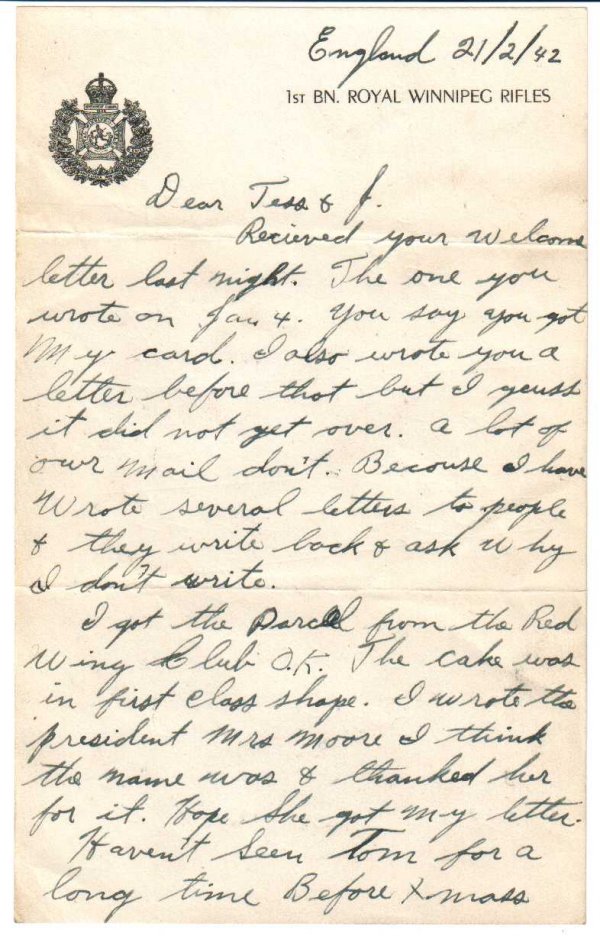 England 21/2/42
1ST BN. ROYAL WINNIPEG RIFLES
Dear Tess & J.
Recieved your welcome
letter last night. The one you
wrote on Jan 4. You say you got
my card. I also wrote you a
letter before that but I geuss
it did not get over. A lot of
our mail don't. Because I have
wrote several letters to people
& they write back & ask why
I don't write.
I got the Parcel from the Red
Wing Club O.K. The cake was
in first class shape. I wrote the
president Mrs Moore I think
the name was & thanked her
for it. Hope she got my letter.
Haven't seen Tom for a
long time Before Xmass